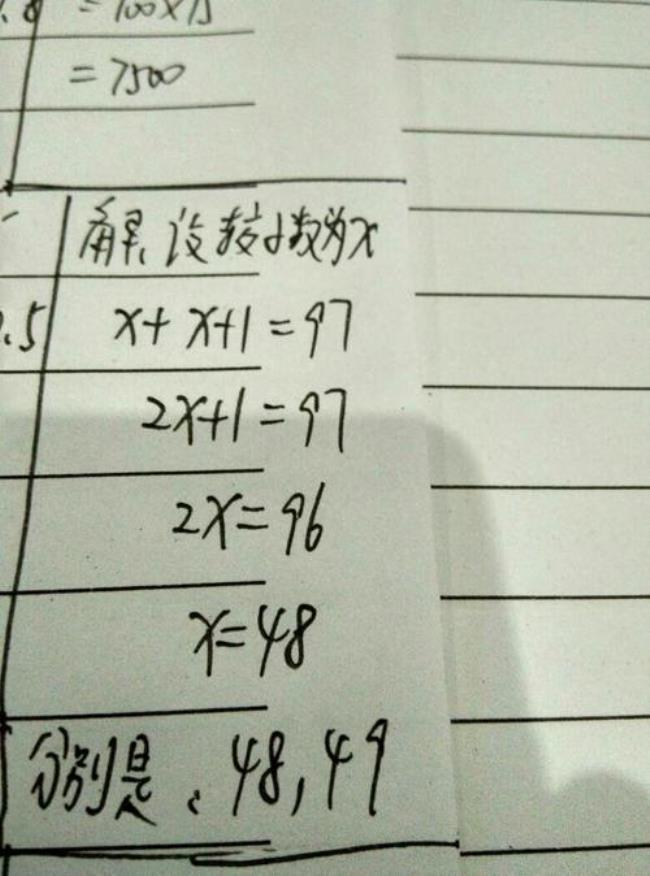 = 100×75
= 7500
解、设较小数为x
.5
x+x+1=97
2x+1=97
2x=96
x=48
分别是、48,49